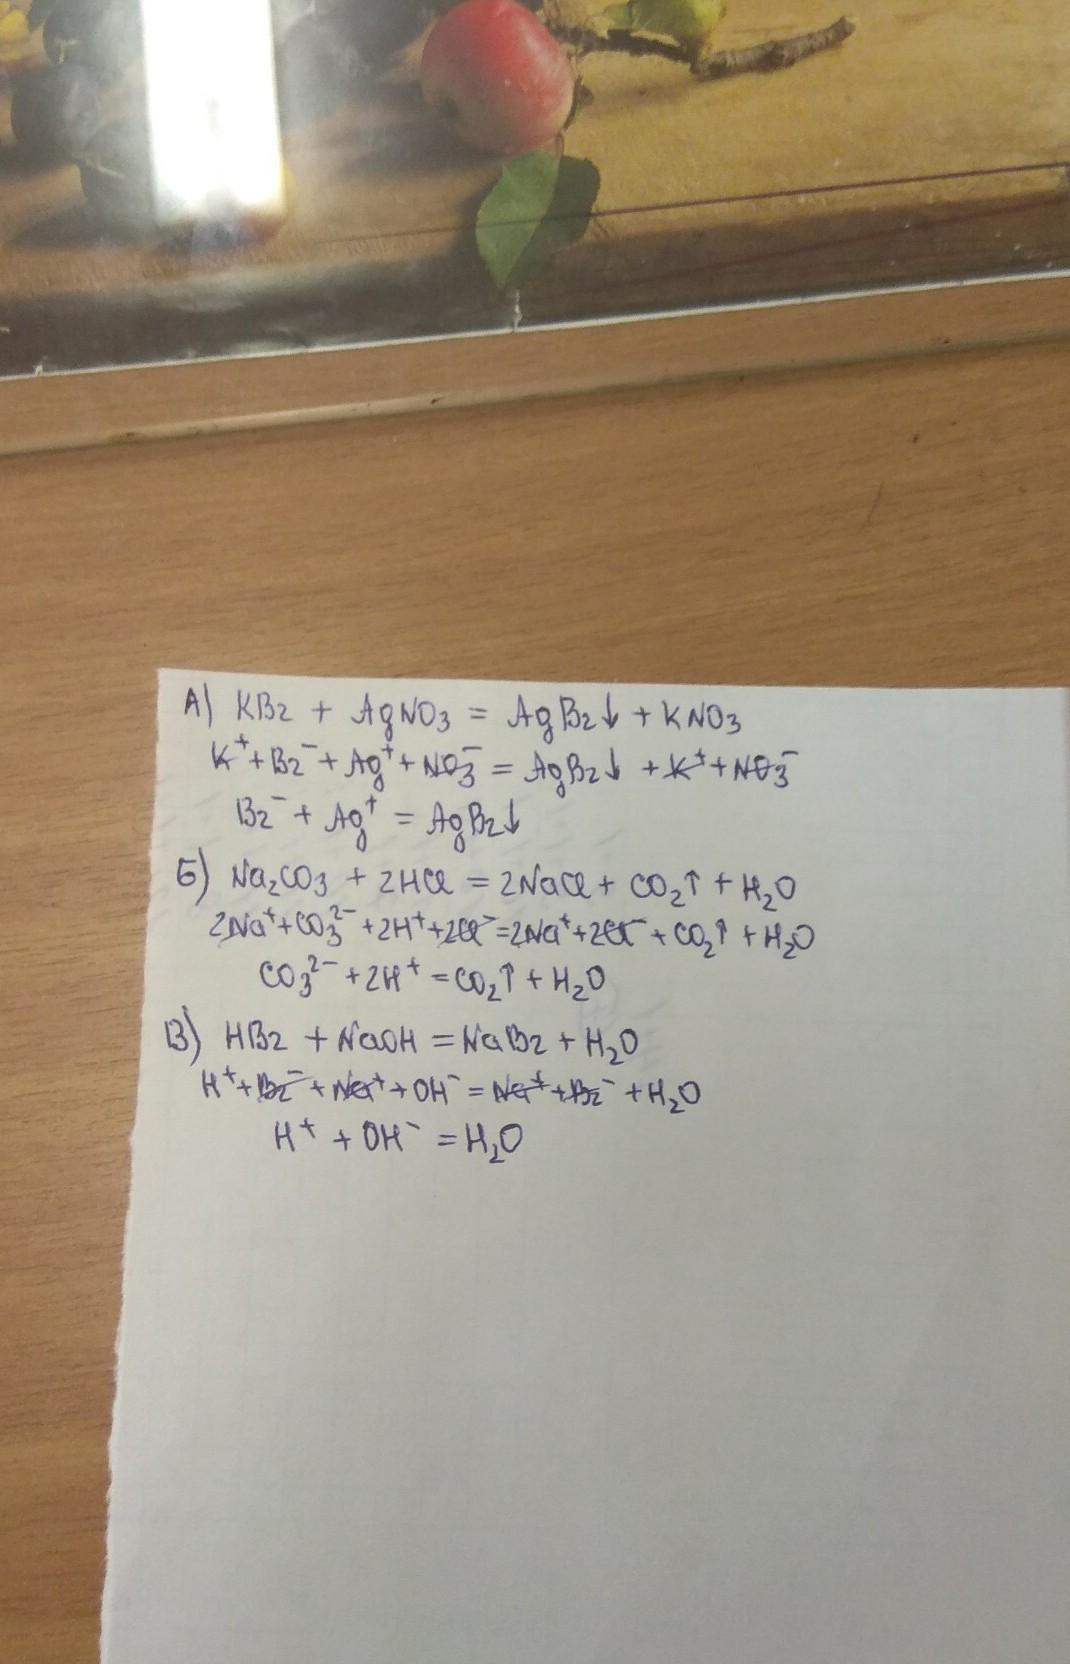 А) KBr + AgNO3 = AgBr↓ + KNO3
K⁺ + Br⁻ + Ag⁺ + NO3⁻ = AgBr↓ + K⁺ + NO3⁻
Br⁻ + Ag⁺ = AgBr↓
Б) Na₂CO3 + 2HCl = 2NaCl + CO₂↑ + H₂O
2Na⁺ + CO3²⁻ + 2H⁺ + 2Cl⁻ = 2Na⁺ + 2Cl⁻ + CO₂↑ + H₂O
CO3²⁻ + 2H⁺ = CO₂↑ + H₂O
В) HBr + NaOH = NaBr + H₂O
H⁺ + Br⁻ + Na⁺ + OH⁻ = Na⁺ + Br⁻ + H₂O
H⁺ + OH⁻ = H₂O